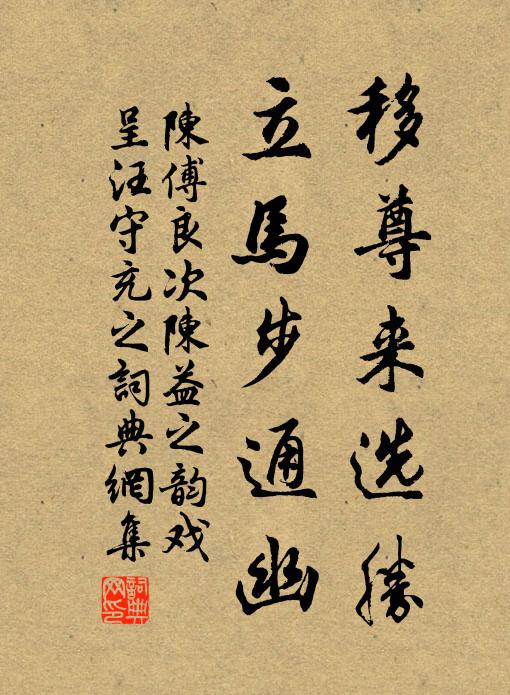 移尊来选勝
立馬步通幽
陳傅良次陳益之韵戏
呈汪守充之詞典網集
詞典网印